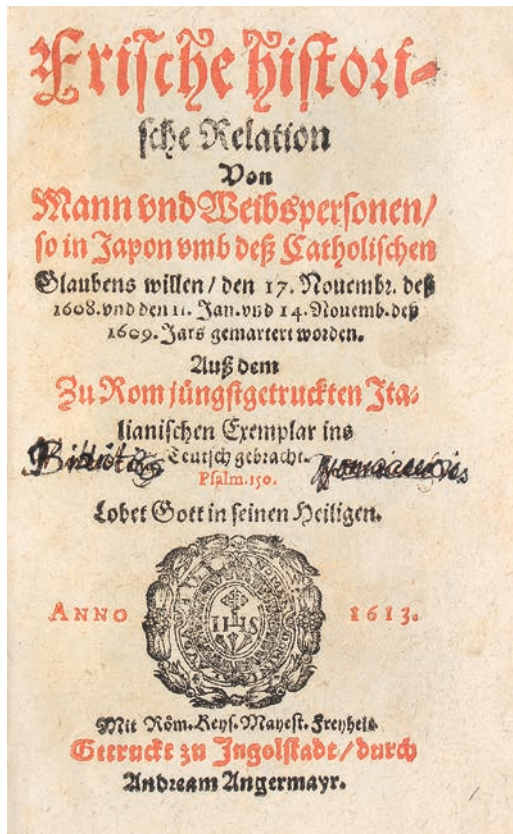 Frische histori-
sche Relation
Von
Mann vnd Weibspersonen/
so in Japon vmb deß Catholischen
Glaubens willen/ den 17. Nouembr. deß
1608. vnd den 11. Jan. vnd 14. Nouemb. deß
1609. Jars gemartert worden.
Auß dem
Zu Rom jüngstgetruckten Ita-
lianischen Exemplar ins
Teutsch gebracht.
Psalm. 150.
Lobet Gott in seinen Heiligen.
IHS
ANNO 1613.
Mit Röm. Keys. Mayest. Freyheit.
Getruckt zu Ingolstadt/ durch
Andream Angermayr.